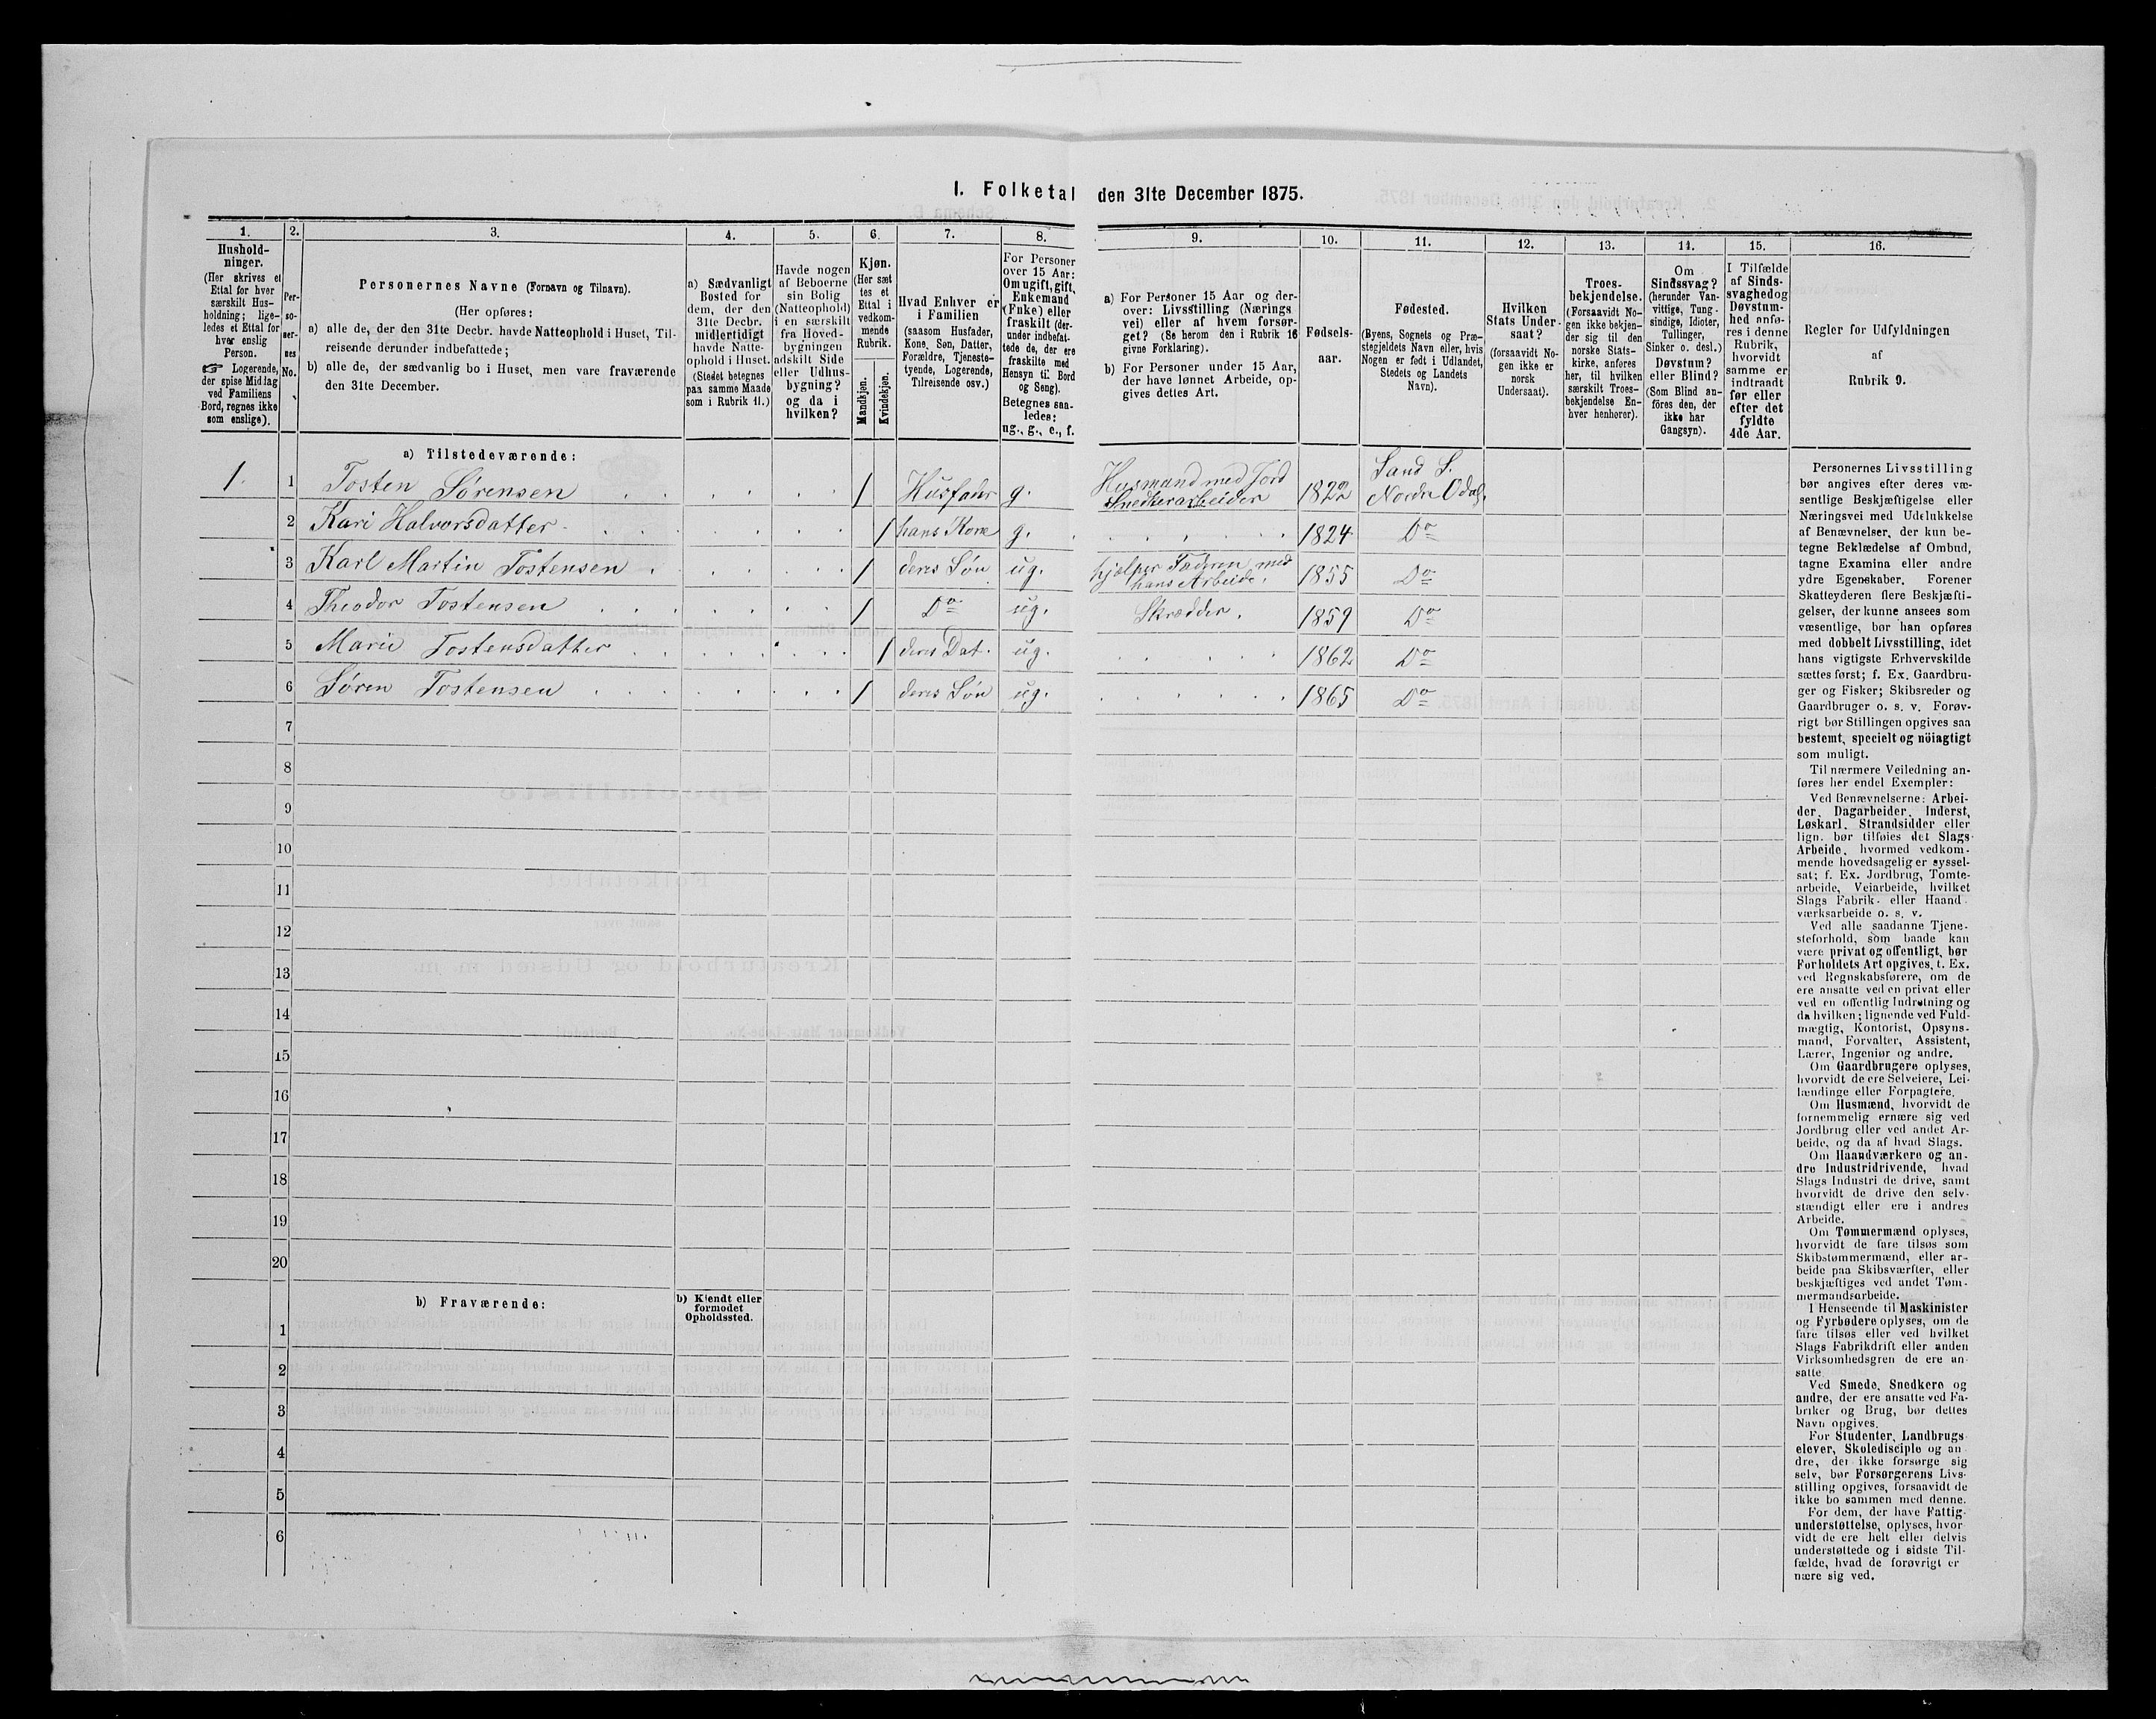 I. Folketal den 31te December 1875.
1. 2. 3. 4. 5. 6. 7. 8. 9. 10. 11. 12. 13. 14. 15. 16.
Hushold-
ninger.
(Her skrives et
Ettal for hver
særskilt Hus-
holdning; lige-
ledes et Ettal for
hver enslig
Person.
☞ Logerende,
der spise Middag
ved Familiens
Bord, regnes ikke
som enslige).
Per-
so-
ner-
nes
No.
Personernes Navne (Fornavn og Tilnavn).
(Her opføres:
a) alle de, der den 31te Decbr. havde Natteophold i Huset, Til-
reisende derunder indbefattede;
b) alle de, der sædvanlig bo i Huset, men vare fraværende
den 31te December.
a) Sædvanligt
Bosted for
dem, der den
31te Decbr.
midlertidigt
havde Natte-
ophold i Huset.
(Stedet betegnes
paa samme Maade
som i Rubrik 11.)
Havde nogen
af Beboerne
sin Bolig
(Natteophold)
i en særskilt
fra Hoved-
bygningen
adskilt Side
eller Udhus-
bygning?
og da i
hvilken?
Kjøn.
(Her sæt
tes et
Ettal i
vedkom-
mende
Rubrik.
Mandkjøn.
Kvindekjøn.
Hvad Enhver er
i Familien
(saasom Husfader,
Kone, Søn, Datter,
Forældre, Tjeneste-
tyende, Logerende,
Tilreisende osv.)
For Personer
over 15 Aar:
Om ugift, gift,
Enkemand
(Enke) eller
fraskilt (der-
under indbefat-
tede de, der ere
fraskilte med
Hensyn til Bord
og Seng).
Betegnes saa-
ledes:
ug., g., e., f.
a) For Personer 15 Aar og der-
over: Livsstilling (Nærings
vei) eller af hvem forsør-
get? (Se herom den i Rubrik 16
givne Forklaring).
b) For Personer under 15 Aar,
der have lønnet Arbeide, op-
gives dettes Art.
Fødsels-
aar.
Fødested.
(Byens, Sognets og Præ-
stegjeldets Navn eller, hvis
Nogen er født i Udlandet,
Stedets og Landets
Navn).
Hvilken
Stats Under-
saat?
(forsaavidt No-
gen ikke er
norsk
Undersaat).
Troes-
bekjendelse.
(Forsaavidt No-
gen ikke bekjen-
der sig til den
norske Stats-
kirke, anføres
her, til hvilken
særskilt Troes-
bekjendelse En-
hver henhører).
Om
Sindssvag?
(herunder Van-
vittige, Tung-
sindige, Idioter,
Tullinger,
Sinker o. desl.)
Døvstum?
eller Blind?
(Som Blind an-
føres den, der
ikke har
Gangsyn).
I Tilfælde
af Sinds-
svaghed og
Døvstum-
hed anfø-
res i denne
Rubrik,
hvorvidt
samme er
indtraadt
før eller
efter det
fyldte
4de Aar.
Regler for Udfyldningen
af
Rubrik 9.
a) Tilstedeværende:
1. 1 Tosten Sørensen 1 Husfader g. Husmand med Jord Snedkerarbeider 1822 Sand S. Nordre Odal,
2 Kari Halvorsdatter 1 hans Kone g. 1824 Do
3 Karl Martin Tostensen 1 deres Søn ug. hjelper Faderen med hans Arbeide. 1855 Do
4 Theodor Tostensen 1 Do ug. Skrædder. 1859 Do
5 Marie Tostensdatter 1 deres Dat. ug. 1862 Do
6 Søren Tostensen 1 deres Søn ug. 1865 Do
7
8
9
10
11
12
13
14
15
16
17
18
19
20
b) Fraværende:
b) Kjendt eller
formodet
Opholdssted.
1
2
3
4
5
6
Personernes Livsstilling
bør angives efter deres væ-
sentlige Beskjæftigelse eller
Næringsvei med Udelukkelse
af Benævnelser, der kun be-
tegne Beklædelse af Ombud,
tagne Examina eller andre
ydre Egenskaber. Forener
Skatteyderen flere Beskjæfti-
gelser, der kunne ansees som
væsentlige, bør han opføres
med dobbelt Livsstilling, idet
hans vigtigste Erhvervskilde
sættes først; f. Ex. Gaardbru-
ger og Fisker; Skibsreder og
Gaardbruger o. s. v. Forøv-
rigt bør Stillingen opgives saa
bestemt, specielt og nöiagtigt
som muligt.
Til nærmere Veiledning an-
føres her endel Exempler:
Ved Benævnelserne: Arbei-
der, Dagarbeider, Inderst,
Løskarl, Strandsidder eller
lign. bør tilføies det Slags
Arbeide, hvormed vedkom-
mende hovedsagelig er syssel-
sat; f. Ex. Jordbrug, Tomte-
arbeide, Veiarbeide, hvilket
Slags Fabrik- eller Haand-
værksarbeide o. s. v.
Ved alle saadanne Tjene-
steforhold, som baade kan
være privat og offentligt, bør
Forholdets Art opgives, t. Ex.
ved Regnskabsførere, om de
ere ansatte ved en privat eller
ved en offentlig Indretning og
da hvilken; lignende ved Fuld-
mægtig, Kontorist, Opsyns-
mand, Forvalter, Assistent,
Lærer, Ingeniør og andre.
Om Gaardbrugere oplyses,
hvorvidt de ere Selveiere, Lei-
lændinge eller Forpagtere.
Om Husmænd, hvorvidt de
fornemmelig ernære sig ved
Jordbrug eller ved andet Ar-
beide, og da af hvad Slags.
Om Haandværkere og an-
dre Industridrivende, hvad
Slags Industri de drive, samt
hvorvidt de drive den selv-
stændigt eller ere i andres
Arbeide.
Om Tømmermænd oplyses,
hvorvidt de fare tilsøs som
Skibstømmermænd, eller ar-
beide paa Skibsværfter, eller
beskjæftiges ved andet Tøm-
mermandsarbeide.
I Henseende til Maskinister
og Fyrbødere oplyses, om de
fare tilsøs eller ved hvilket
Slags Fabrikdrift eller anden
Virksomhedsgren de ere an-
satte.
Ved Smede, Snedkere og
andre, der ere ansatte ved Fa-
briker og Brug, bør dettes
Navn opgives.
For Studenter, Landbrugs
elever, Skoledisciple og an
dre, der ikke forsørge sig
selv, bør Forsørgerens Livs-
stilling opgives, forsaavidt de
ikke bo sammen med denne.
For dem, der have Fattig-
understøttelse, oplyses, hvor
vidt de ere helt eller delvis
understøttede og i sidste Til-
fælde, hvad de forøvrigt er
nære sig ved.